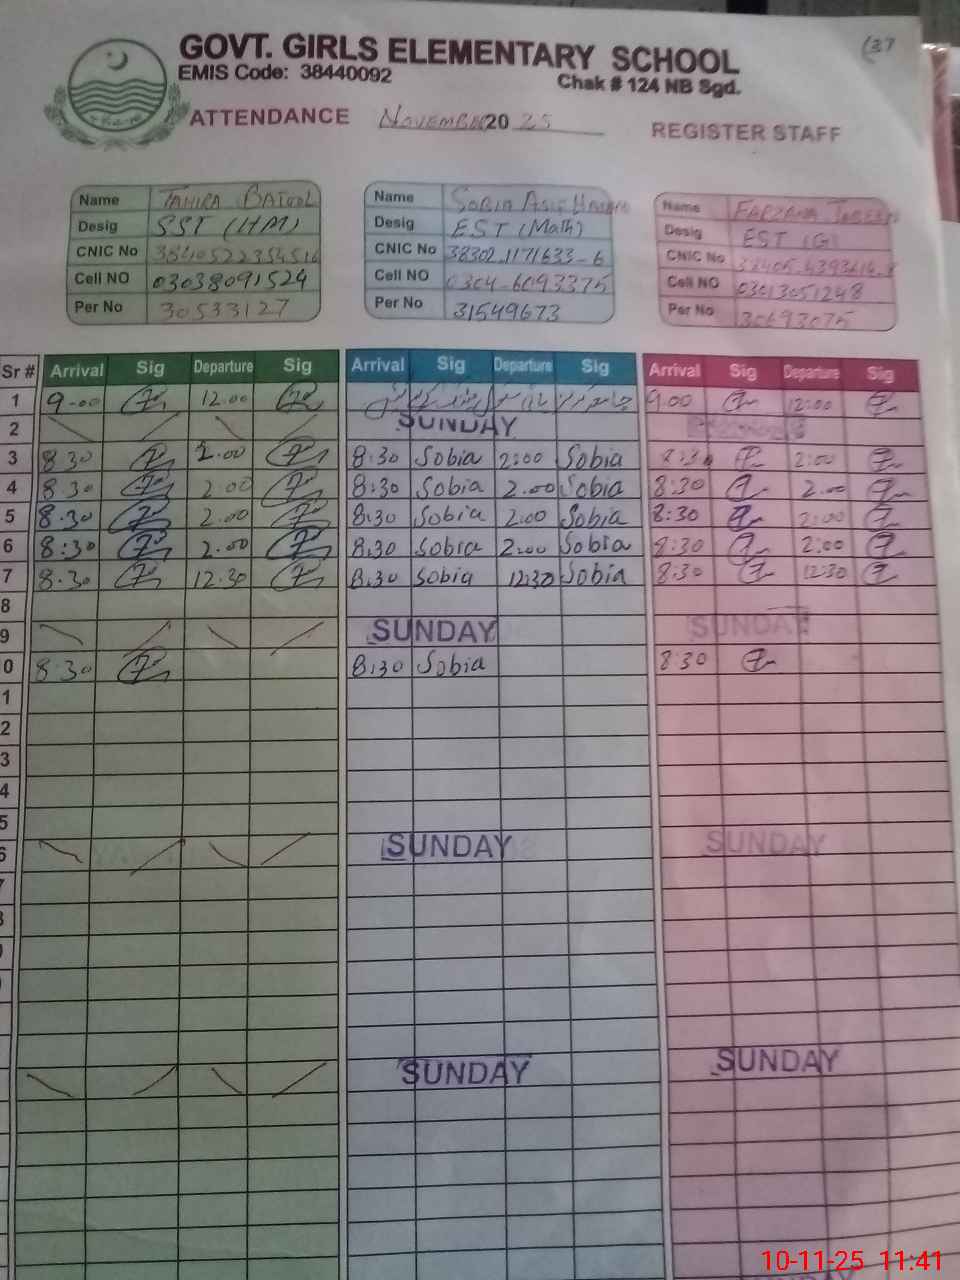 (37
GOVT. GIRLS ELEMENTARY SCHOOL
EMIS Code: 38440092
Chak # 124 NB Sgd.
ATTENDANCE November 2025 REGISTER STAFF
Name TAHIRA BATOOL
Desig SST (HM)
CNIC No
Cell NO 03038091524
Per No 30533127
Name SOBIA ASIF
Desig EST (Math)
CNIC No 38302-1171633-6
Cell NO 0304-6093375
Per No 31549673
Name FARZANA
Desig EST (G)
CNIC No
Cell NO 03013051248
Per No 30693075
Sr # Arrival Sig Departure Sig Arrival Sig Departure Sig Arrival Sig Departure Sig
1 9-00 12.00 9.00 12:00
2 SUNDAY
3 8 30 2.00 8:30 Sobia 2:00 Sobia 8:30 2:00
4 8 30 2.00 8:30 Sobia 2.00 Sobia 8:30 2.00
5 8.30 2.00 8:30 Sobia 2:00 Sobia 8:30 2:00
6 8:30 2.00 8:30 Sobia 2:00 Sobia 8:30 2:00
7 8.30 12.30 8:30 Sobia 12:30 Sobia 8:30 12:30
8
9 SUNDAY SUNDAY
0 8.30 8:30 Sobia 8:30
1
2
3
4
5
6 SUNDAY SUNDAY
SUNDAY SUNDAY
10-11-25 11:41